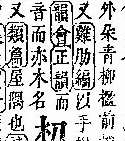 外朵青柳檻前
又雞肋編以手
韻會正韻而
音而亦木名
又類篇屋隅也